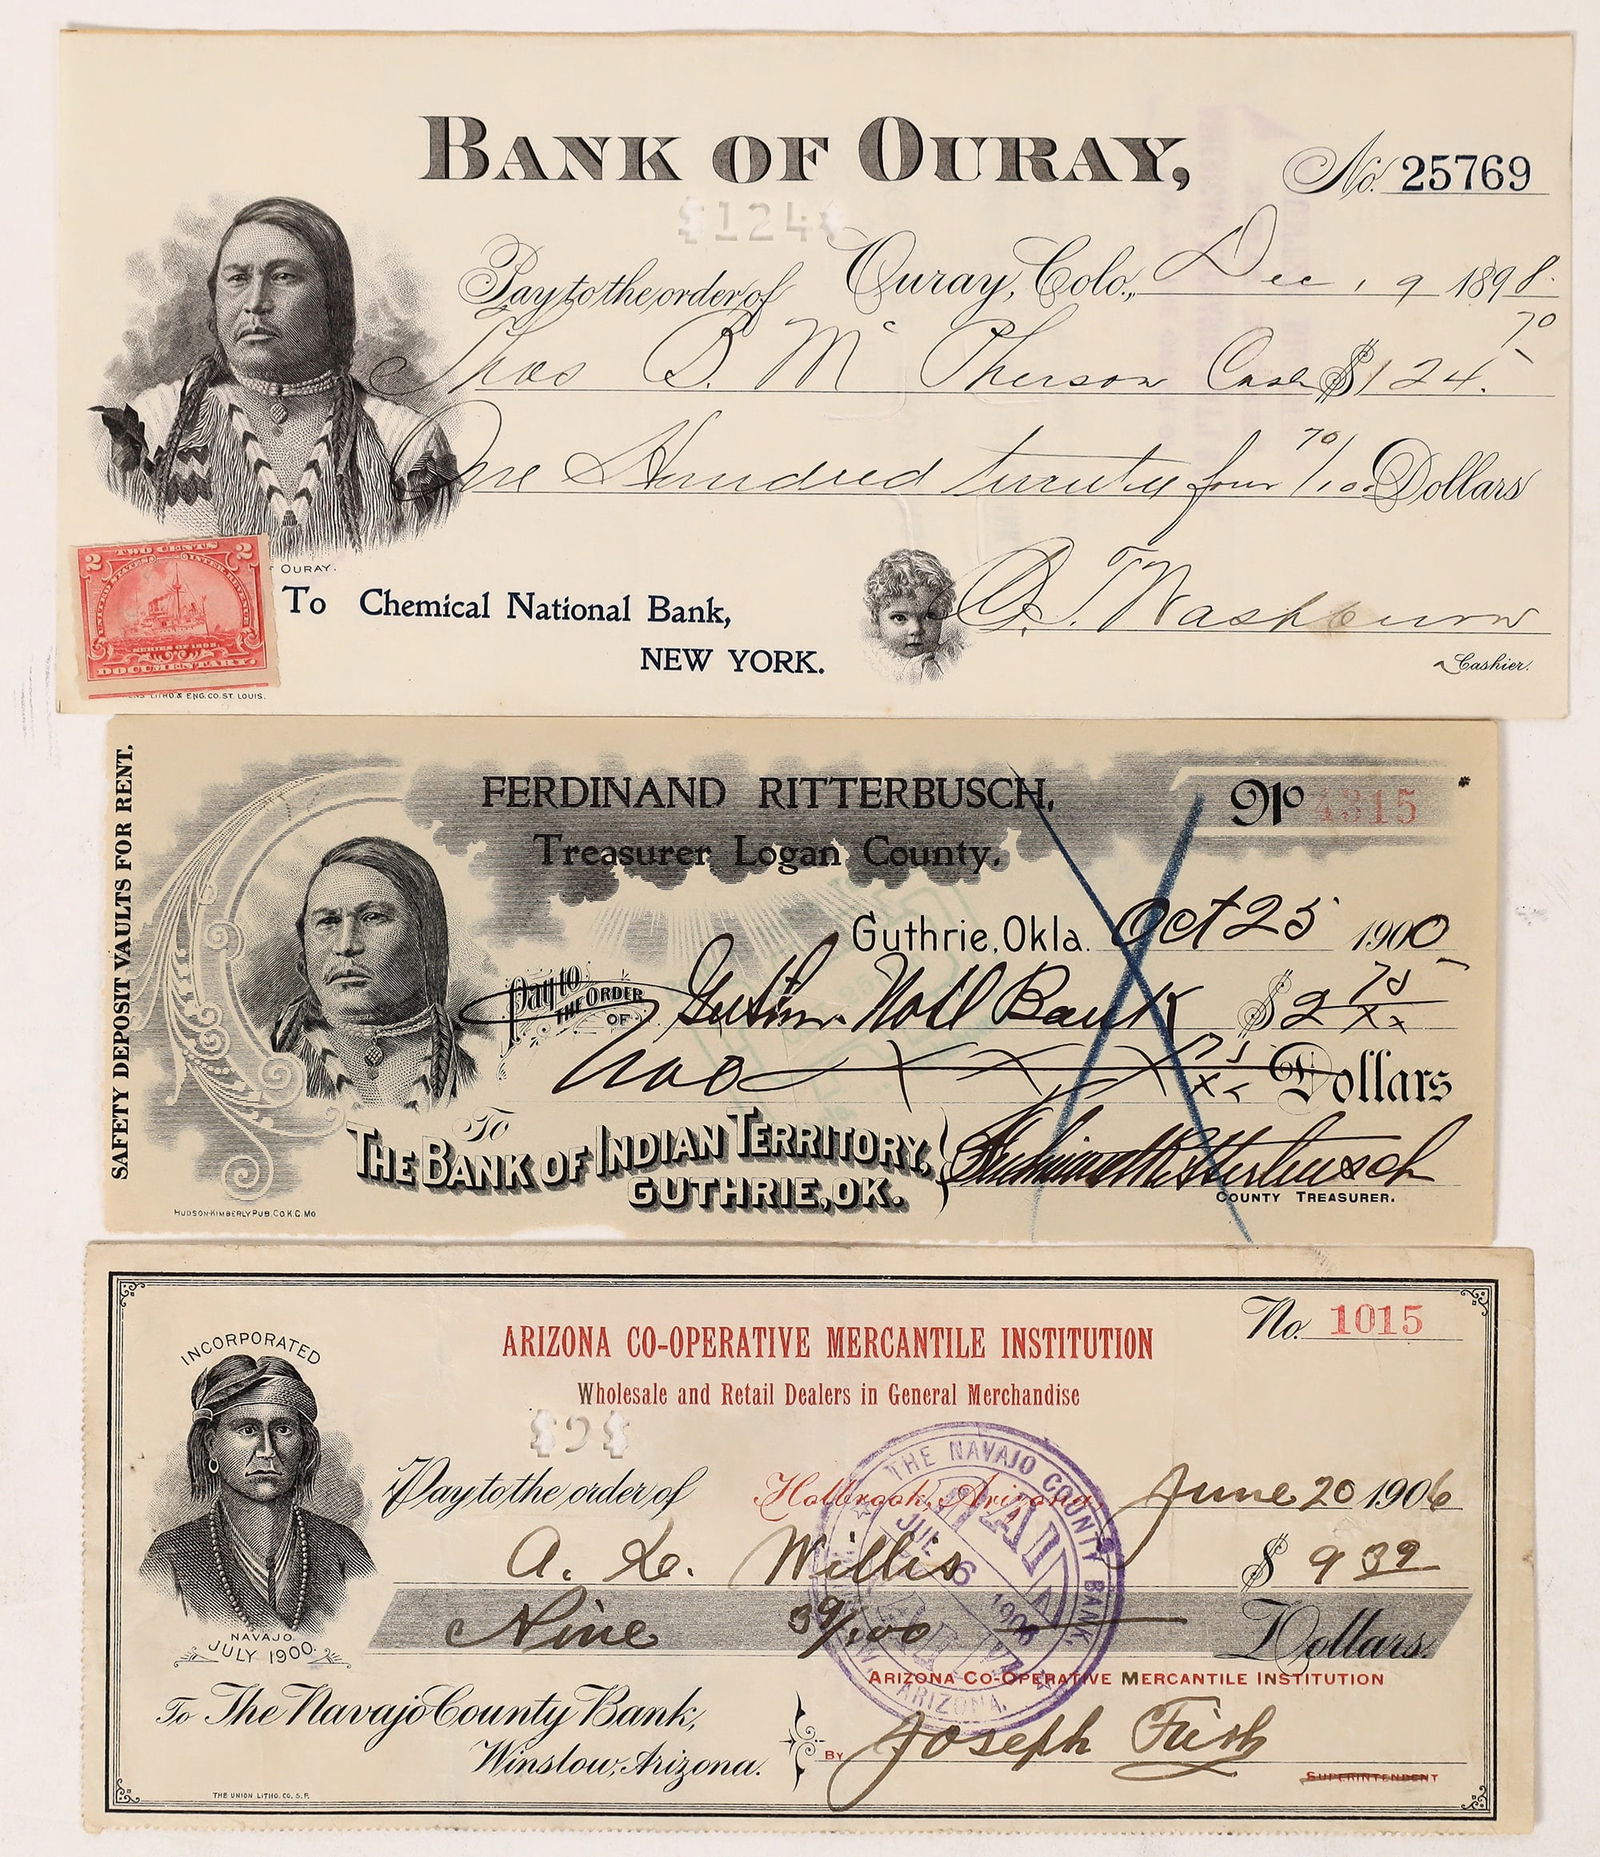 BANK OF OURAY,
No. 25769
$124$
Ouray, Colo., Dec, 9 1898.
Pay to the order of
Thos B. Mc Pherson Cash $124. 70
One Hundred twenty four 70/100 Dollars
OURAY.
2 TWO CENTS 2
SERIES OF 1898
DOCUMENTARY.
To Chemical National Bank,
NEW YORK.
Washburn
Cashier.
LITHO & ENG. CO. ST. LOUIS.
SAFETY DEPOSIT VAULTS FOR RENT.
FERDINAND RITTERBUSCH,
No 4315
Treasurer Logan County.
Guthrie, Okla. Oct 25 1900
Pay to THE ORDER OF Natl Bank $2 75/xx
Two 75/xx Dollars
To THE BANK OF INDIAN TERRITORY,
GUTHRIE, OK.
Ferdinand Ritterbusch
COUNTY TREASURER.
HUDSON-KIMBERLY PUB. CO. K.C. MO
No. 1015
INCORPORATED
ARIZONA CO-OPERATIVE MERCANTILE INSTITUTION
Wholesale and Retail Dealers in General Merchandise
$9$
Pay to the order of Holbrook, Arizona, June 20 1906
A. Willis $9 39
Nine 39/100 Dollars.
NAVAJO
JULY 1900.
THE NAVAJO COUNTY BANK.
PAID
JUL 6 1906
ARIZONA.
ARIZONA CO-OPERATIVE MERCANTILE INSTITUTION
To The Navajo County Bank,
Winslow, Arizona.
BY Joseph Fish
SUPERINTENDENT
THE UNION LITHO. CO. S.F.